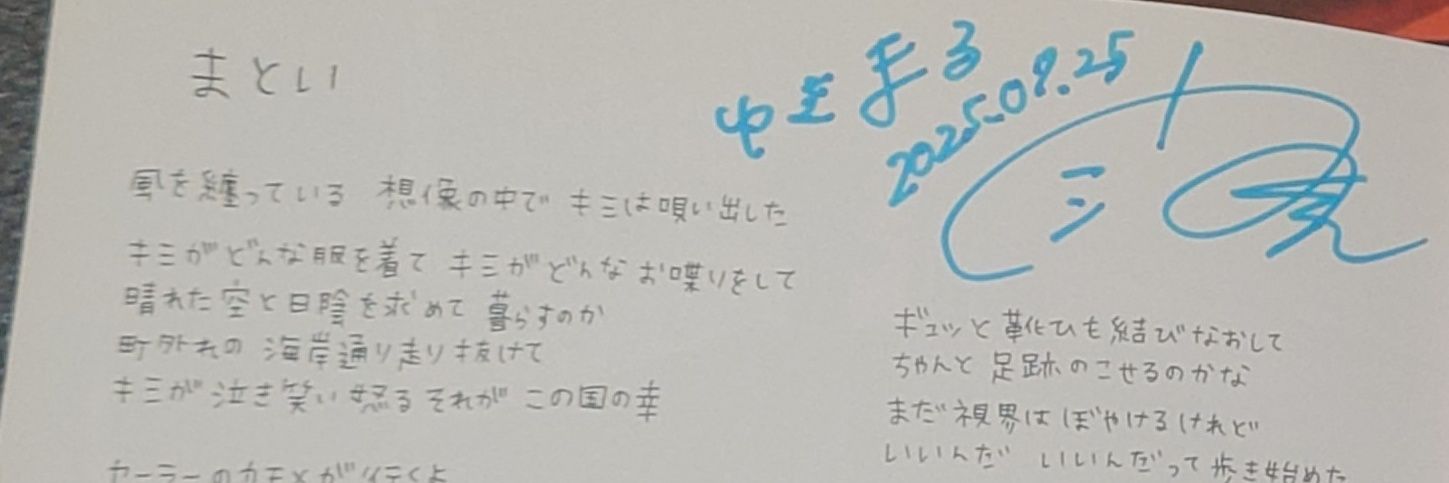 まとい
風を纏っている 想像の中で キミは唄い出した
キミがどんな服を着て キミがどんなお喋りをして
晴れた空と日陰を求めて 暮らすのか
町外れの 海岸通り走り抜けて
キミが泣き笑い怒る それが この国の幸
セーラーのカモメが行くよ
2025.09.25
ギュッと靴ひも結びなおして
ちゃんと足跡のこせるのかな
まだ視界はぼやけるけれど
いいんだ いいんだって歩き始めた